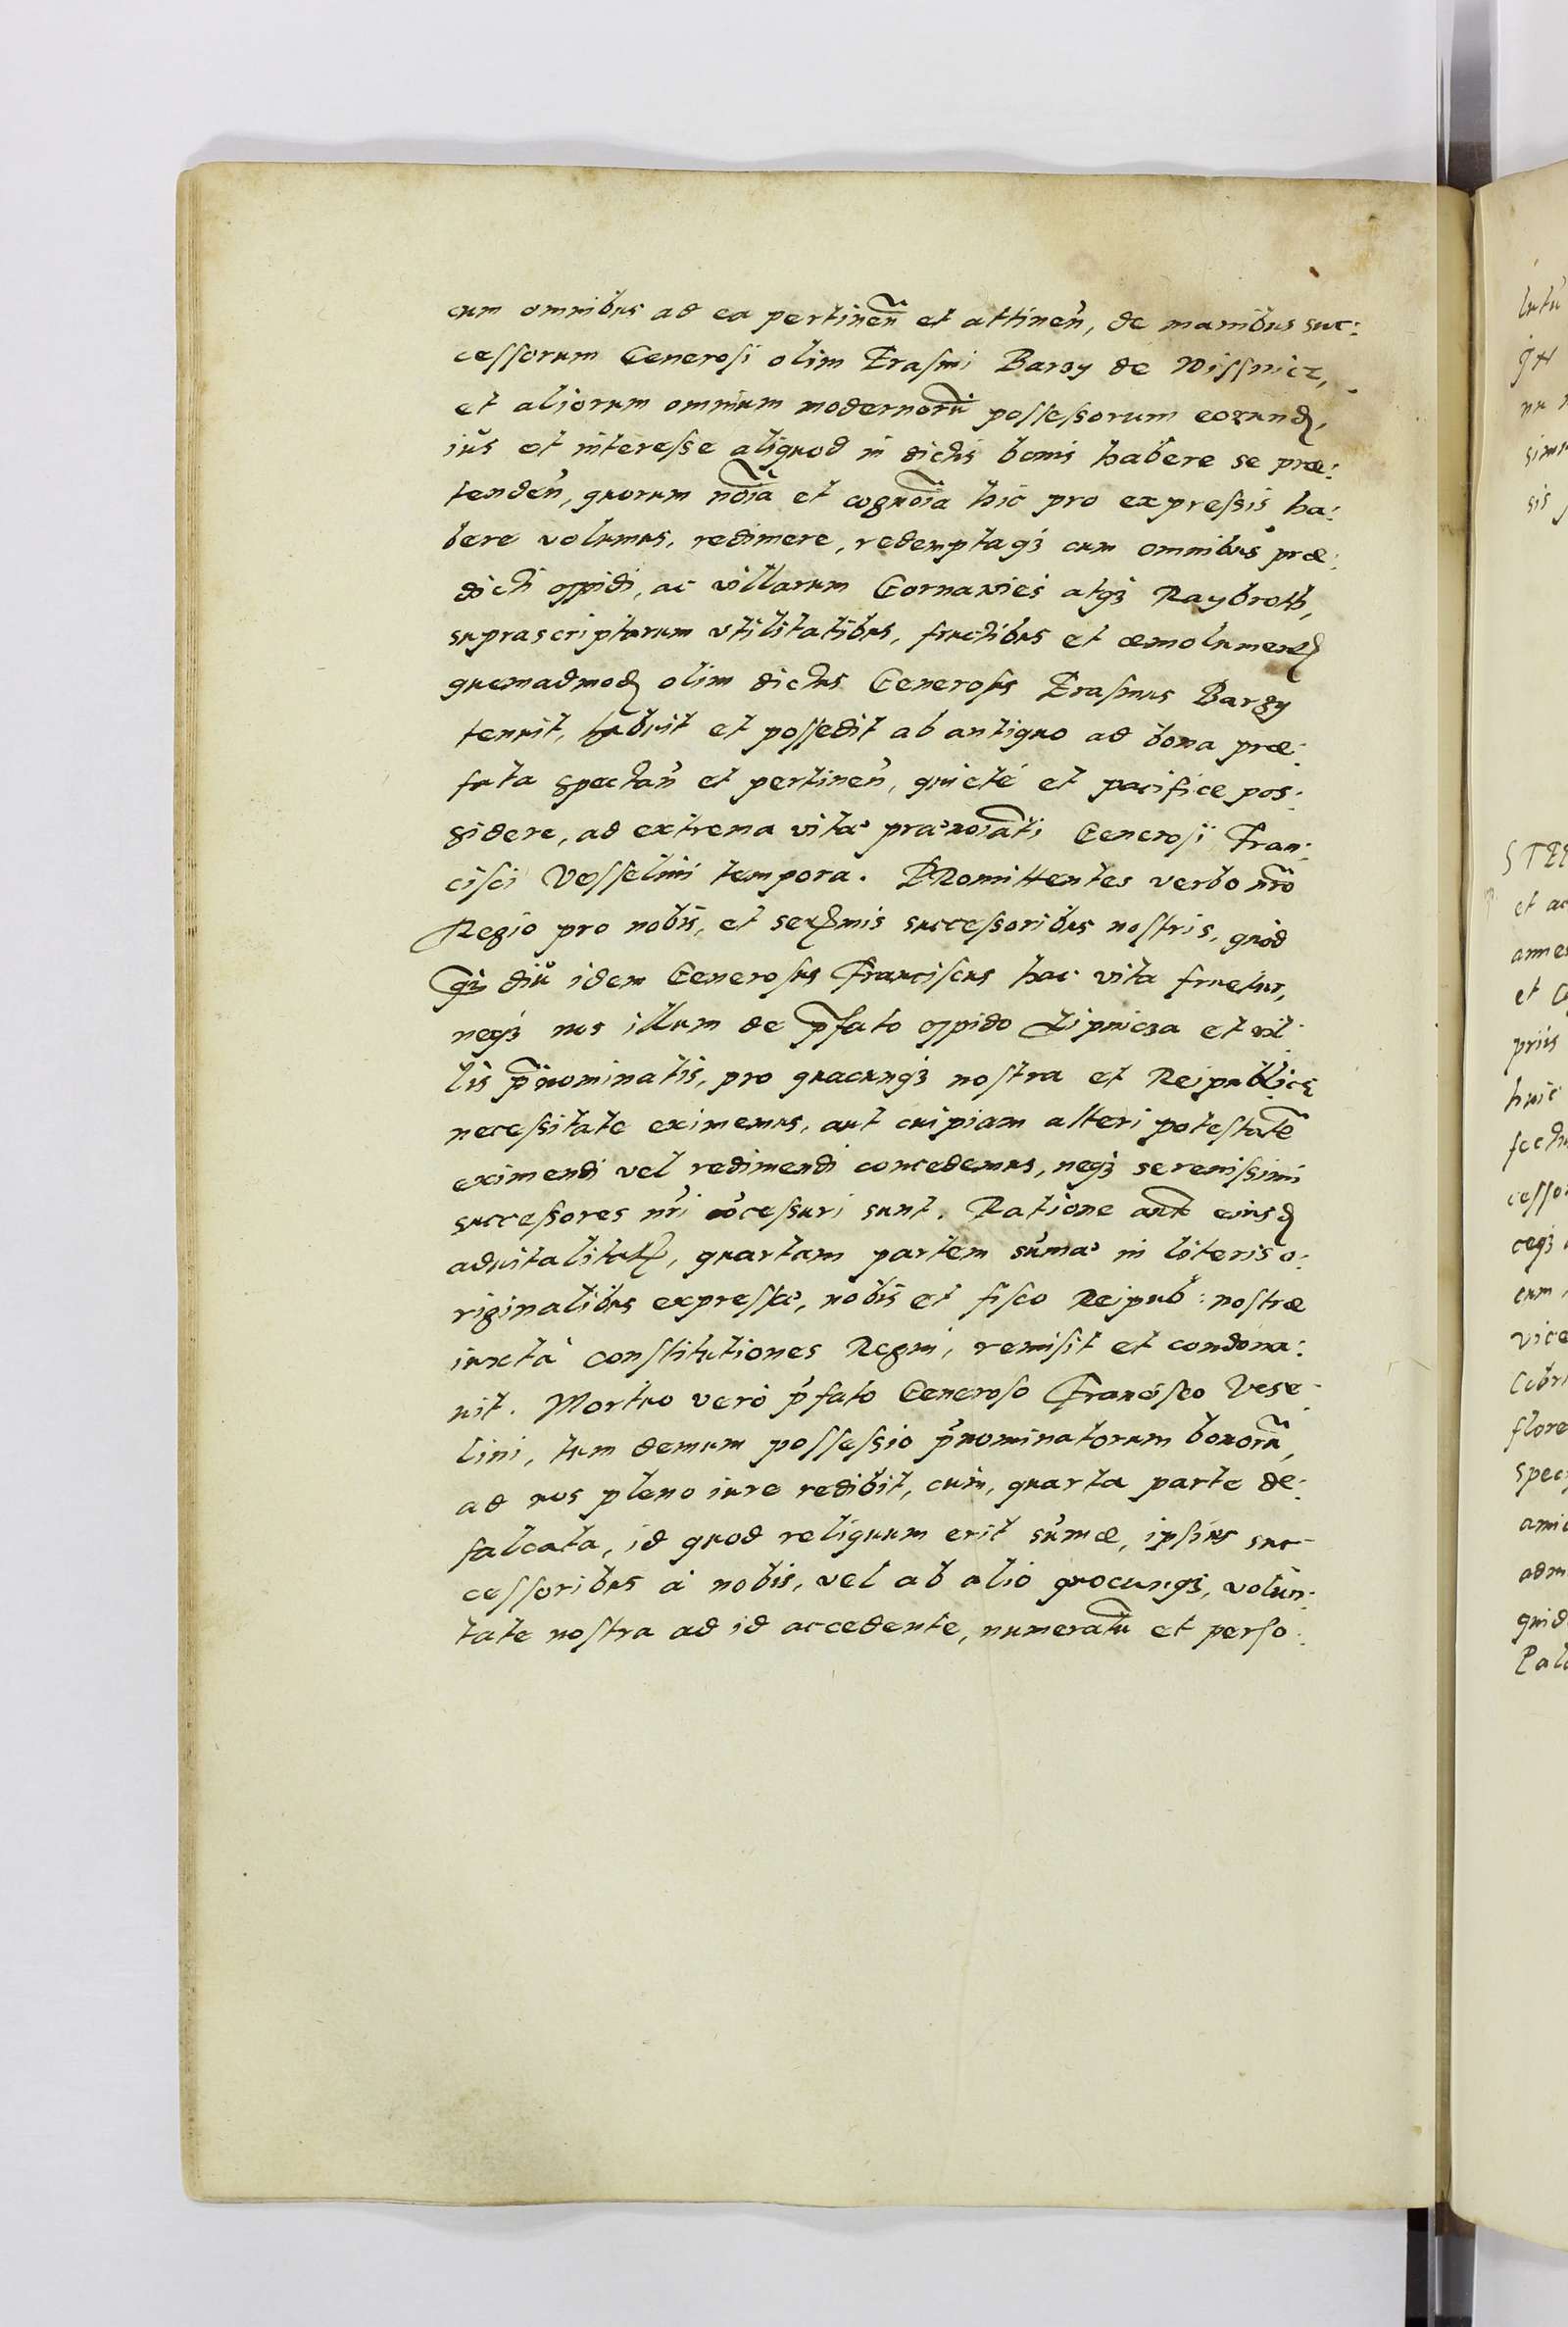 cum omnibus ad ea pertineñ et attineñ, de manibus suc:
cessorum Generosi olim Erasmi Barzy de Wissnicz,
et aliorum omnium modernorũ possessorum eorund,
ius et interesse aliquod in dictis bonis habere se præ:
tendeñ, quorum noĩa et cognoĩa hic pro expressis ha:
bere volumus, redimere, redemptaqȝ cum omnibus præ:
dicti oppidi, ac villarum Gornawies atqȝ Raybroth,
suprascriptarum vtilitatibus, fructibus et æmolument
quemadmod olim dictus Generosus Erasmus Barzy
tenuit, habuit et possedit ab antiquo ad bona præ:
fata spectañ et pertineñ, quieté et pacifice pos:
sidere, ad extrema vitæ prænoĩati Generosi Fran:
cisci Vesselini tempora. PRomittentes verbo nr̃o
Regio pro nobis, et ser^mis successoribus nostris, quod
qȝ diu idem Generosus Franciscus hac vita fruetur,
neqȝ nos illum de p̃fato oppido Lipnicza et vil:
lis p̃nominatis, pro quacunqȝ nostra et Reipublicę
necessitate eximemus, aut cuipiam alteri potestatẽ
eximendi vel redimendi concedemus, neqȝ serenissimi
successores nr̃i cõcessuri sunt. Ratione aut̃ eiusd
aduitalitat, quartam partem sum̃æ in literis o:
riginalibus expressæ, nobis et fisco Reipub: nostræ
iuxtà constitutiones Regni, remisit et condona:
uit. Mortuo verò p̃fato Generoso Francisco Vese:
lini, tum demum possessio p̃nominatorum bonorũ,
ad nos pleno iure redibit, cum, quarta parte de:
falcata, id quod reliquum erit sum̃æ, ipsius suc-
cessoribus à nobis, vel ab alio quocunqȝ, volun:
tate nostra ad id accedente, numeratũ et perso: